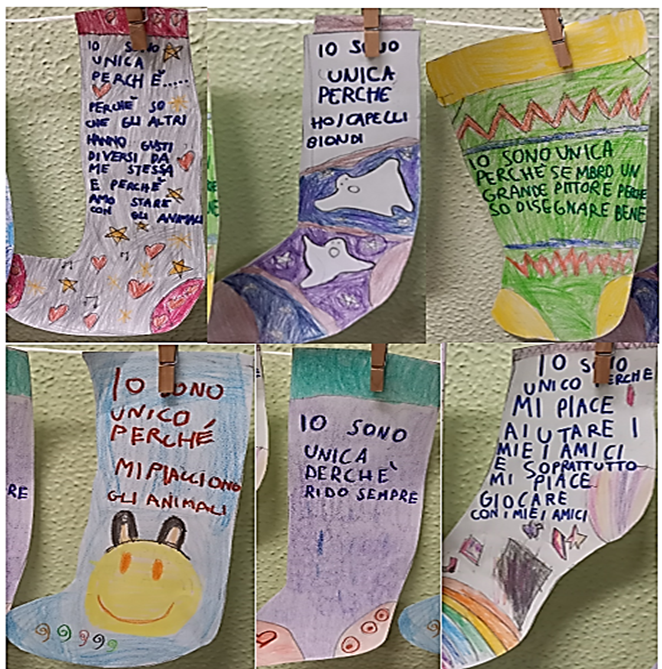 IO SONO
UNICA
PERCHÉ.....
PERCHÉ SO
CHE GLI ALTRI
HANNO GUSTI
DIVERSI DA
ME STESSA
E PERCHÉ
AMO STARE
CON GLI ANIMALI
IO SONO
UNICA
PERCHÉ
HO I CAPELLI
BIONDI
IO SONO UNICA
PERCHE SEMBRO UN
GRANDE PITTORE PERCHE
SO DISEGNARE BENE
IO SONO
UNICO
PERCHÉ
MI PIACCIONO
GLI ANIMALI
RE
IO SONO
UNICA
PERCHÈ
RIDO SEMPRE
IO SONO
UNICO PERCHE
MI PIACE
AIUTARE I
MIEI AMICI
E SOPRATTUTTO
MI PIACE
GIOCARE
CON I MIEI AMICI